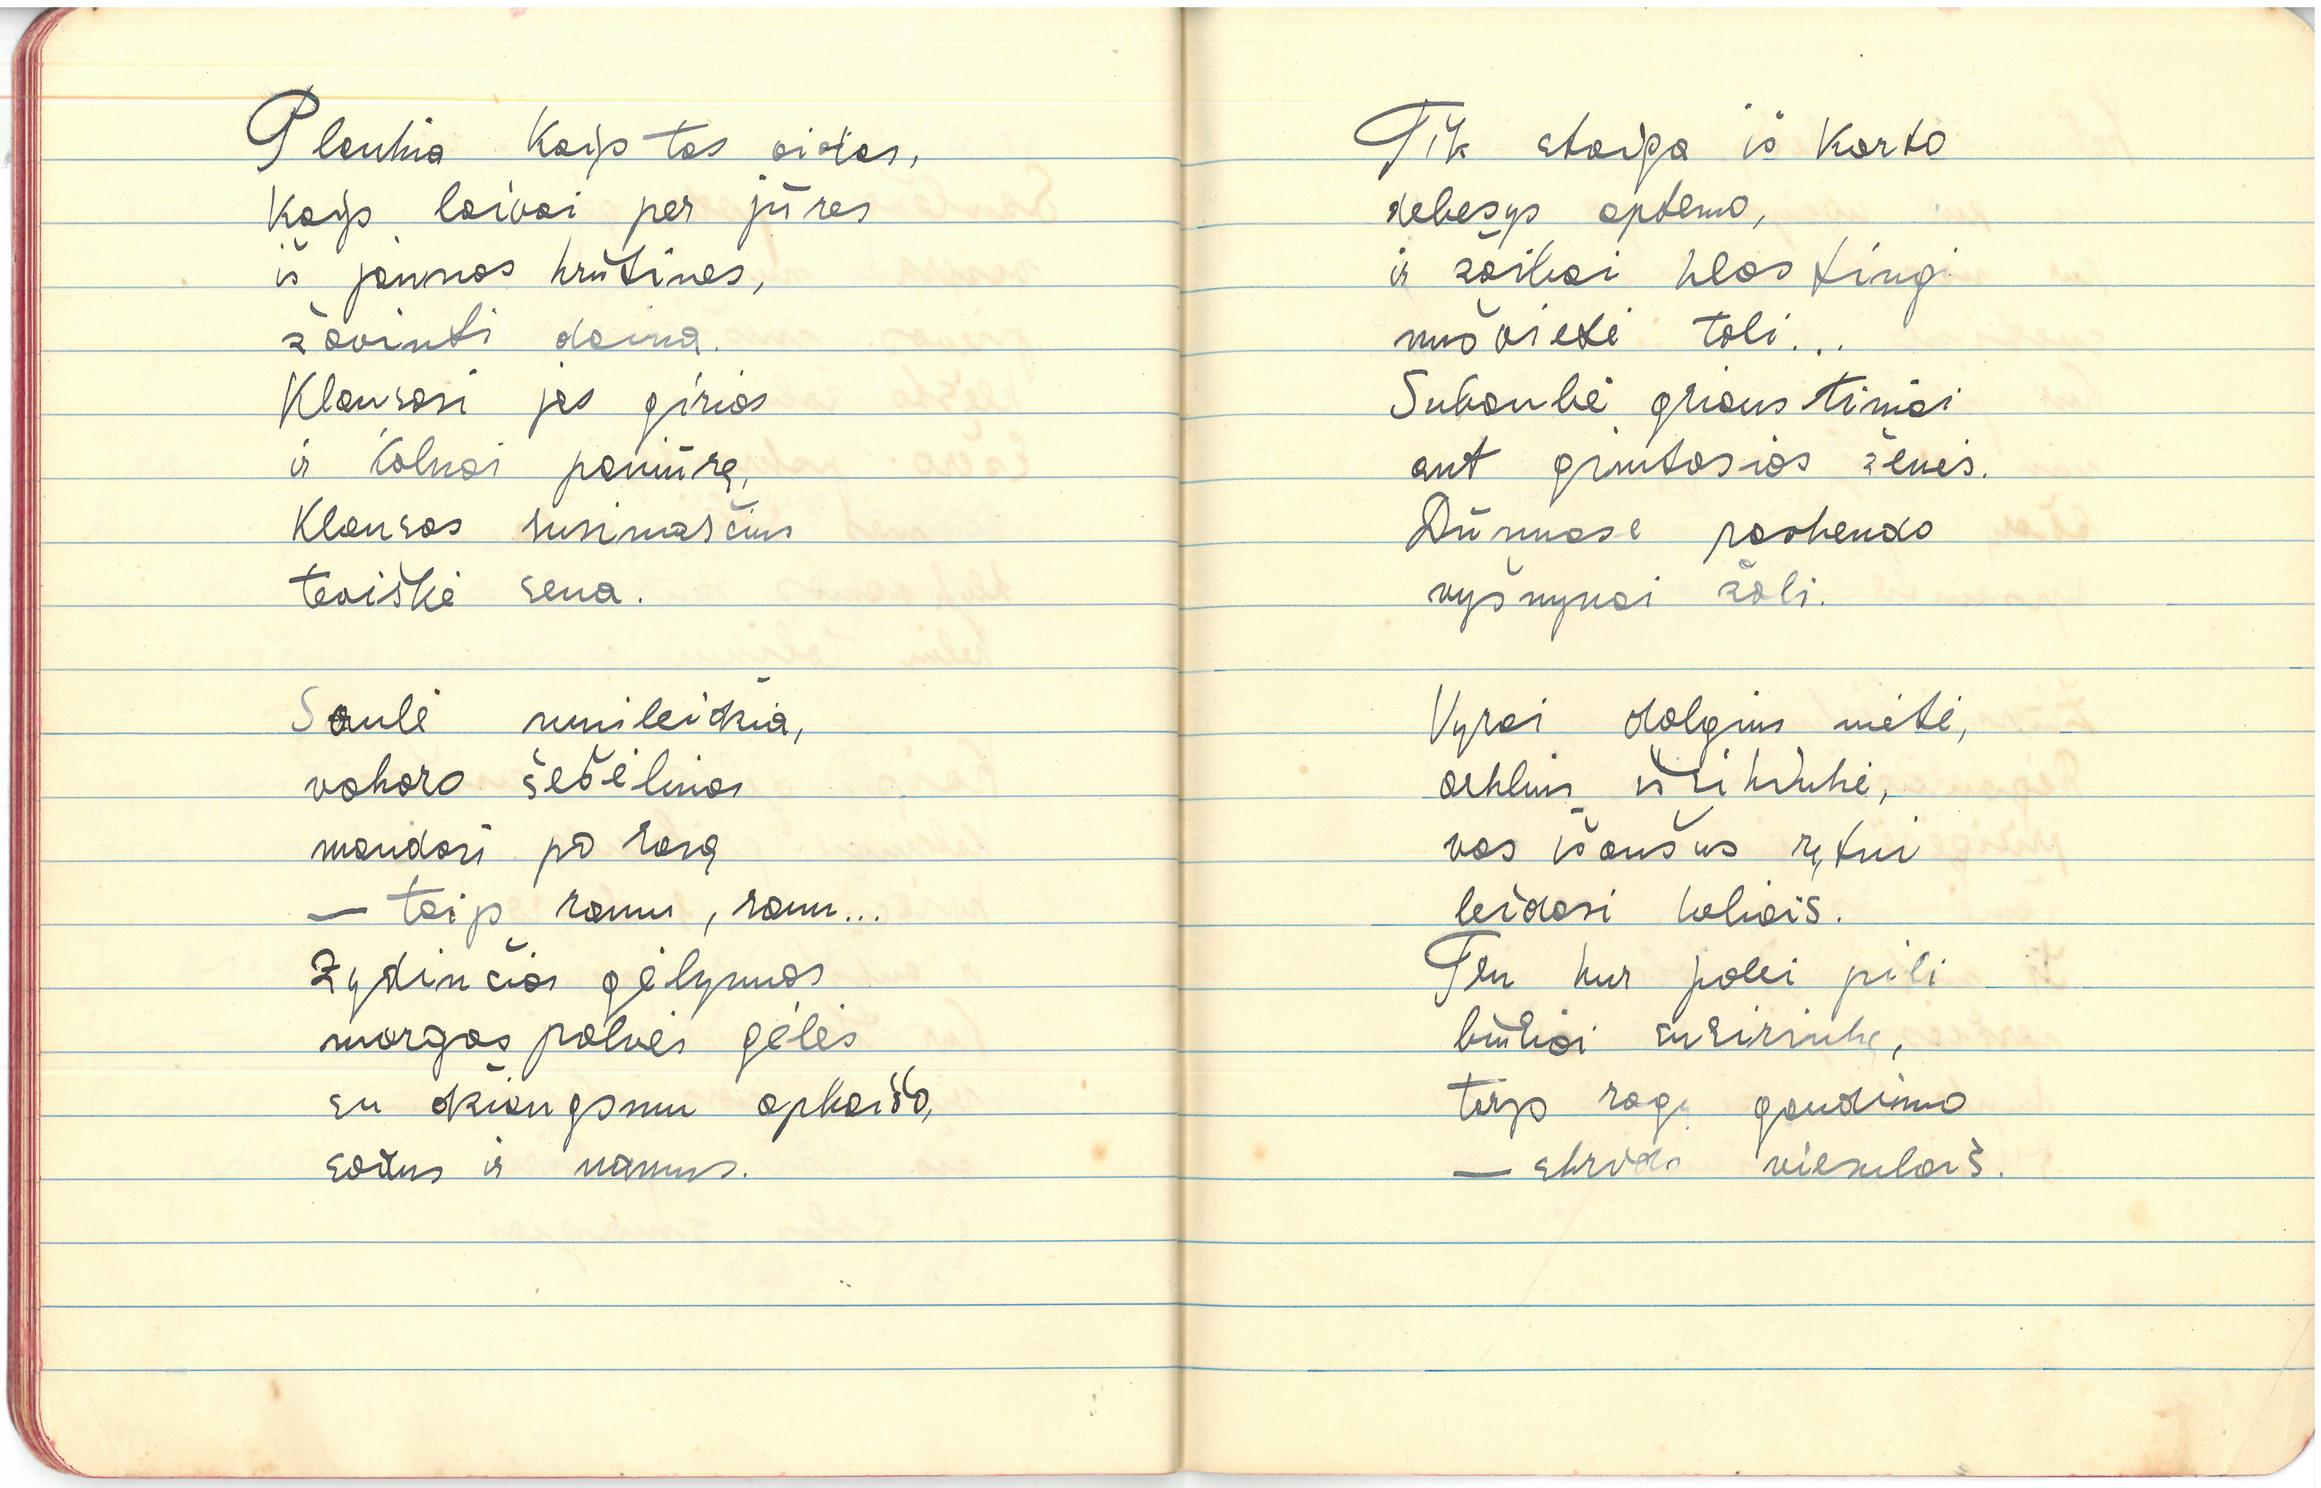 Plaukia kaip tas aidas,
kaip laivai per jūres
iš jaunos krūtinės,
žavinti daina.
Klausosi jos girios
ir kalnai paniūrę,
Klausos susimąsčius
tėviškė sena.
Saulė nusileidžia,
vakaro šešėlinos
maudosi po rasą
— taip ramu, ramu...
Žydinčios gėlynuos
margaspalvės gėlės
su džiaugsmu apkaišo,
sodus ir namus.
Tik staiga iš karto
debesys aptemo,
ir žaibai klastingi
nušvietė toli...
Subaubė griaustiniai
ant gimtosios žemės.
Dūmuose paskendo
vyšnynai žali.
Vyrai dalgius metė,
arklius išsikinkė,
vos išaušus rytui
leidosi keliais.
Ten kur palei pilį
būriai susirinkę,
tarp ragų gaudimo
— skrido viesulais.